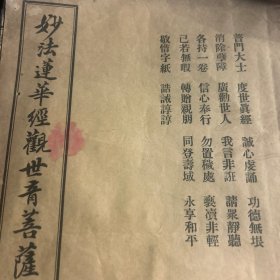 普門大士 度世眞經 誠心虔誦 功德無垠
消除孽障 廣勸世人 我言非誑 請眾靜聽
各持一卷 信心奉行 勿置穢處 褻瀆非輕
己若無暇 轉贈親朋 同登壽域 永享和平
敬惜字紙 誥誡諄諄
妙法蓮華經觀世音菩薩